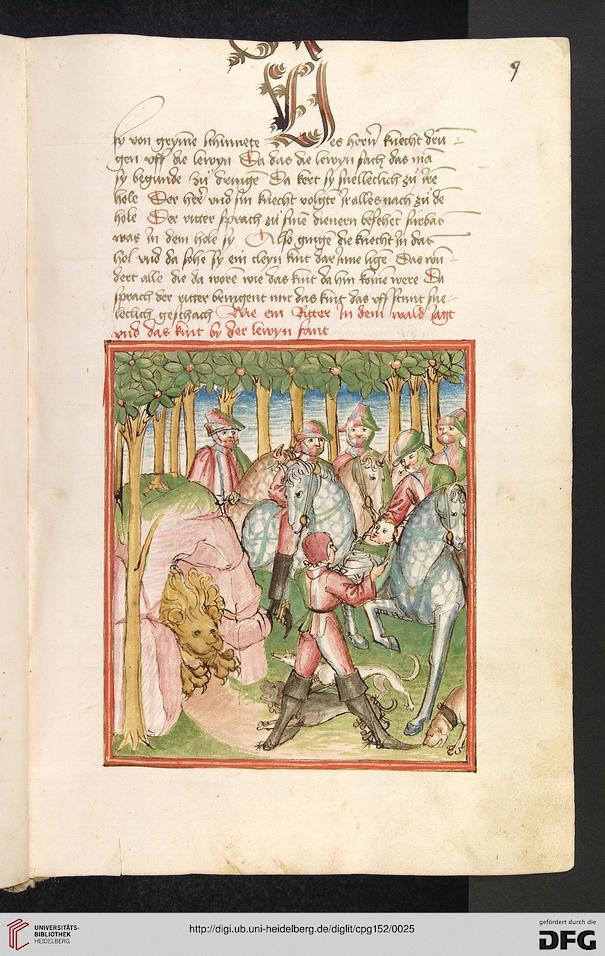 9
sy von gryme lymmete Des herrn knecht dru-
gen uff die lewyn Da das die lewyn sach das man
sy begunde zu drengen Da kert sy snelleclich zu ire
hole Der her und sin knecht volgte ir alles nach zu de
hole Der ritter sprach zu sine dienern besehet furbas
was in dem hole sy Also gingen die knecht in das
hol und da sohe sy ein cleyn kint dar inne lige Das won-
dert alle die da wore wie das kint da hin kome were Da
sprach der ritter bringent mir das kint das uff stunt sne-
leclich geschach Wie ein Ritter in dem wald jagt
und das kint by der lewyn fant
UNIVERSITÄTS-
BIBLIOTHEK
HEIDELBERG
http://digi.ub.uni-heidelberg.de/diglit/cpg152/0025
gefördert durch die
DFG